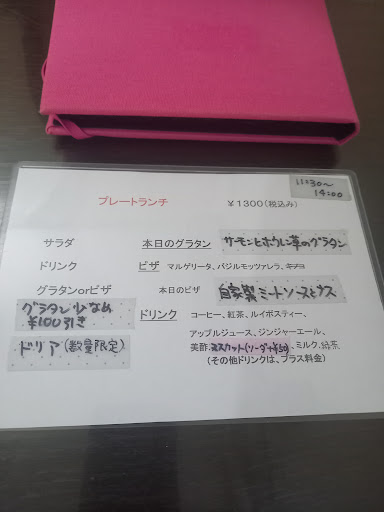 11:30〜
14:00
プレートランチ ￥1300(税込み)
サラダ 本日のグラタン サーモンとホウレン草のグラタン
ドリンク ピザ マルゲリータ、バジルモッツァレラ、キノコ
グラタンorピザ 本日のピザ 自家製ミートソースピザ
グラタン少なめ
¥100引き
ドリンク コーヒー、紅茶、ルイボスティー、
アップルジュース、ジンジャーエール、
ドリア(数量限定) 美酢マスカット(ソーダ+¥50)、ミルク、緑茶
(その他ドリンクは、プラス料金)